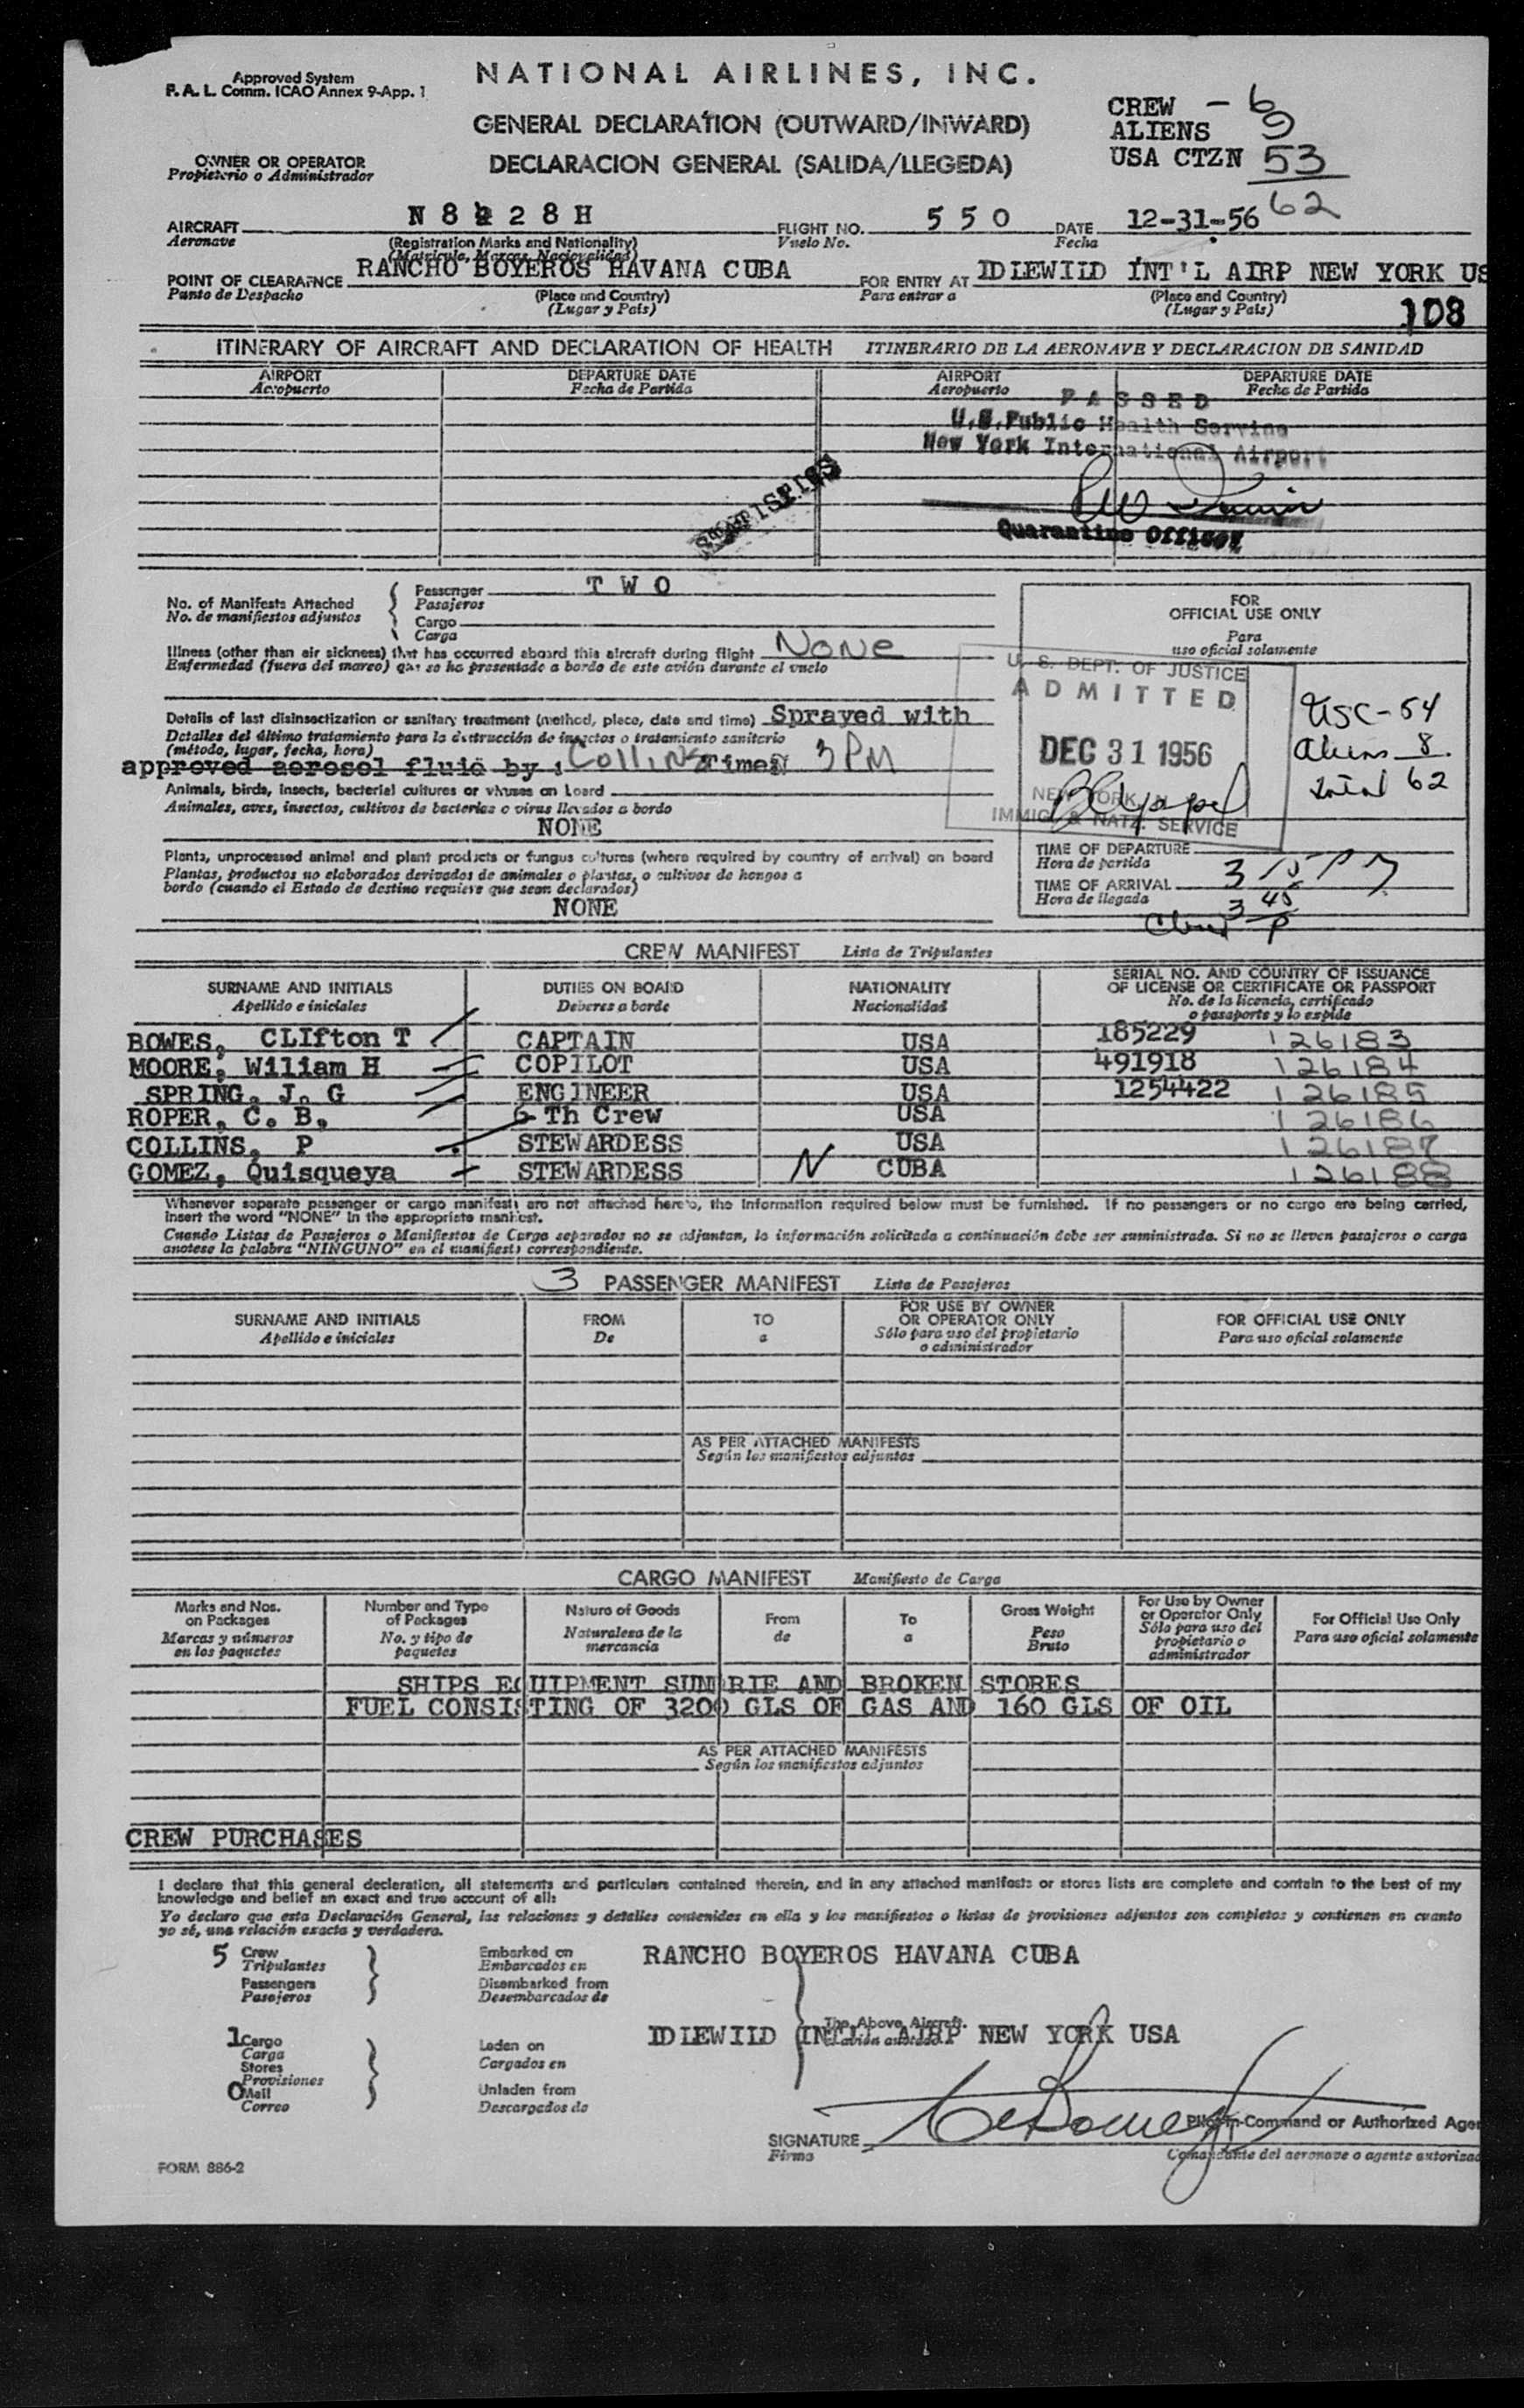 Approved System
F. A. L. Comm. ICAO Annex 9-App. 1
NATIONAL AIRLINES, INC.
GENERAL DECLARATION (OUTWARD/INWARD)
DECLARACION GENERAL (SALIDA/LLEGEDA)
CREW - 6
ALIENS 9
USA CTZN 53
62
OWNER OR OPERATOR
Propietario o Administrador
AIRCRAFT N 8 2 2 8 H FLIGHT NO. 5 5 0 DATE 12-31-56
Aeronave (Registration Marks and Nationality) Vuelo No. Fecha
(Matricula, Marcas, Nacionalidad)
POINT OF CLEARANCE RANCHO BOYEROS HAVANA CUBA FOR ENTRY AT IDLEWILD INT'L AIRP NEW YORK US
Punto de Despacho (Place and Country) Para entrar a (Place and Country)
(Lugar y Pais) (Lugar y Pais)
108
ITINERARY OF AIRCRAFT AND DECLARATION OF HEALTH ITINERARIO DE LA AERONAVE Y DECLARACION DE SANIDAD
AIRPORT DEPARTURE DATE AIRPORT DEPARTURE DATE
Aeropuerto Fecha de Partida Aeropuerto Fecha de Partida
PASSED
U.S. Public Health Service
New York International Airport
STATISTICS
Quarantine Officer
No. of Manifests Attached
No. de manifiestos adjuntos
Passenger T W O
Pasajeros
Cargo
Carga
Illness (other than air sickness) that has occurred aboard this aircraft during flight None
Enfermedad (fuera del mareo) que se ha presentado a bordo de este avión durante el vuelo
Details of last disinsectization or sanitary treatment (method, place, date and time) Sprayed with
Detalles del último tratamiento para la destrucción de insectos o tratamiento sanitario
(método, lugar, fecha, hora)
approved aerosol fluid by : Collins Time: 3 PM
Animals, birds, insects, bacterial cultures or viruses on board
Animales, aves, insectos, cultivos de bacterias o virus llevados a bordo
NONE
Plants, unprocessed animal and plant products or fungus cultures (where required by country of arrival) on board
Plantas, productos no elaborados derivados de animales o plantas, o cultivos de hongos a
bordo (cuando el Estado de destino requiere que sean declarados)
NONE
FOR
OFFICIAL USE ONLY
Para
uso oficial solamente
U. S. DEPT. OF JUSTICE
ADMITTED
DEC 31 1956
NEW YORK, N. Y.
IMMIG. & NATZ. SERVICE
USC-54
Aliens 8
total 62
TIME OF DEPARTURE
Hora de partida
TIME OF ARRIVAL 3 15 PM
Hora de llegada
3 45 P
CREW MANIFEST Lista de Tripulantes
SURNAME AND INITIALS DUTIES ON BOARD NATIONALITY SERIAL NO. AND COUNTRY OF ISSUANCE
OF LICENSE OR CERTIFICATE OR PASSPORT
Apellido e iniciales Deberes a borde Nacionalidad No. de la licencia, certificado
o pasaporte y lo expide
BOWES, CLIfton T CAPTAIN USA 185229 126183
MOORE, William H COPILOT USA 491918 126184
SPRING, J. G ENGINEER USA 1254422 126185
ROPER, C. B, 6 Th Crew USA 126186
COLLINS, P STEWARDESS USA 126187
GOMEZ, Quisqueya STEWARDESS N CUBA 126188
Whenever separate passenger or cargo manifests are not attached hereto, the information required below must be furnished. If no passengers or no cargo are being carried,
insert the word "NONE" in the appropriate manifest.
Cuando Listas de Pasajeros o Manifiestos de Carga separados no se adjuntan, la información solicitada a continuación debe ser suministrada. Si no se lleven pasajeros o carga
anotese la palabra "NINGUNO" en el manifiesto correspondiente.
3 PASSENGER MANIFEST Lista de Pasajeros
SURNAME AND INITIALS FROM TO FOR USE BY OWNER OR OPERATOR ONLY FOR OFFICIAL USE ONLY
Apellido e iniciales De a Sólo para uso del propietario o administrador Para uso oficial solamente
AS PER ATTACHED MANIFESTS
Según los manifiestos adjuntos
CARGO MANIFEST Manifiesto de Carga
Marks and Nos. on Packages Number and Type of Packages Nature of Goods From To Gross Weight For Use by Owner or Operator Only For Official Use Only
Marcas y números en los paquetes No. y tipo de paquetes Naturaleza de la mercancia de a Peso Bruto Sólo para uso del propietario o administrador Para uso oficial solamente
SHIPS EQUIPMENT SUNDRIE AND BROKEN STORES
FUEL CONSISTING OF 3200 GLS OF GAS AND 160 GLS OF OIL
AS PER ATTACHED MANIFESTS
Según los manifiestos adjuntos
CREW PURCHASES
I declare that this general declaration, all statements and particulars contained therein, and in any attached manifests or stores lists are complete and contain to the best of my
knowledge and belief an exact and true account of all:
Yo declaro que esta Declaración General, las relaciones y detalles contenidos en ella y los manifiestos o listas de provisiones adjuntos son completos y contienen en cuanto
yo sé, una relación exacta y verdadera.
5 Crew Embarked on RANCHO BOYEROS HAVANA CUBA
Tripulantes Embarcados en
Passengers Disembarked from
Pasajeros Desembarcados de
The Above Aircraft.
1 Cargo Laden on IDLEWILD INTL AIRP NEW YORK USA
Carga Cargados en
Stores
Provisiones
0 Mail Unladen from
Correo Descargados de
Pilot-in-Command or Authorized Agen
SIGNATURE
Firma Comandante del aeronave o agente autorizad
FORM 886-2